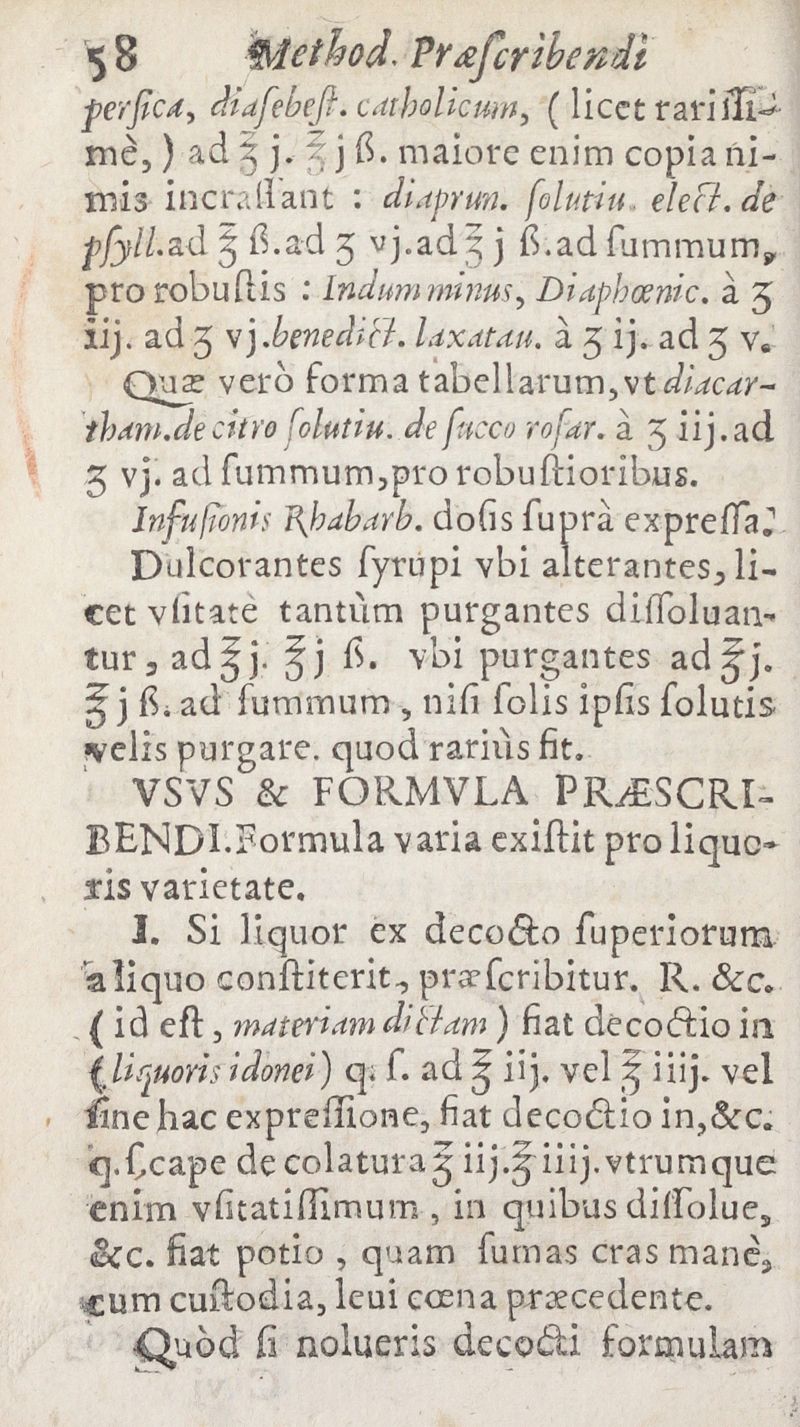 58 Method. Præſcribendi
perſica, diaſebeſt. catholicum, ( licet rariſſi-
mè, ) ad ℥ j. ℥ j ß. maiore enim copia ni-
mis incraſſant : diaprun. ſolutiu. elect. de
pſyll. ad ℥ ß. ad ʒ vj. ad ℥ j ß. ad ſummum,
pro robuſtis : Indum minus, Diaphœnic. à ʒ
iij. ad ʒ vj. benedict. laxatau. à ʒ ij. ad ʒ v.
Quæ verò forma tabellarum, vt diacar-
tham. de citro ſolutiu. de ſucco roſar. à ʒ iij. ad
ʒ vj. ad ſummum, pro robuſtioribus.
Infuſionis Rhabarb. doſis ſuprà expreſſa.
Dulcorantes ſyrupi vbi alterantes, li-
cet vſitatè tantùm purgantes diſſoluan-
tur, ad ℥ j. ℥ j ß. vbi purgantes ad ℥ j.
℥ j ß. ad ſummum, niſi ſolis ipſis ſolutis
velis purgare. quod rariùs fit.
VSVS & FORMVLA PRÆSCRI-
BENDI. Formula varia exiſtit pro liquo-
ris varietate.
I. Si liquor ex decocto ſuperiorum
aliquo conſtiterit, præſcribitur. R. &c.
( id eſt, materiam dictam ) fiat decoctio in
( liquoris idonei ) q. ſ. ad ℥ iij. vel ℥ iiij. vel
ſine hac expreſſione, fiat decoctio in, &c.
q. ſ. cape de colatura ℥ iij. ℥ iiij. vtrumque
enim vſitatiſſimum, in quibus diſſolue,
&c. fiat potio, quam ſumas cras manè,
cum cuſtodia, leui cœna præcedente.
Quòd ſi nolueris decocti formulam